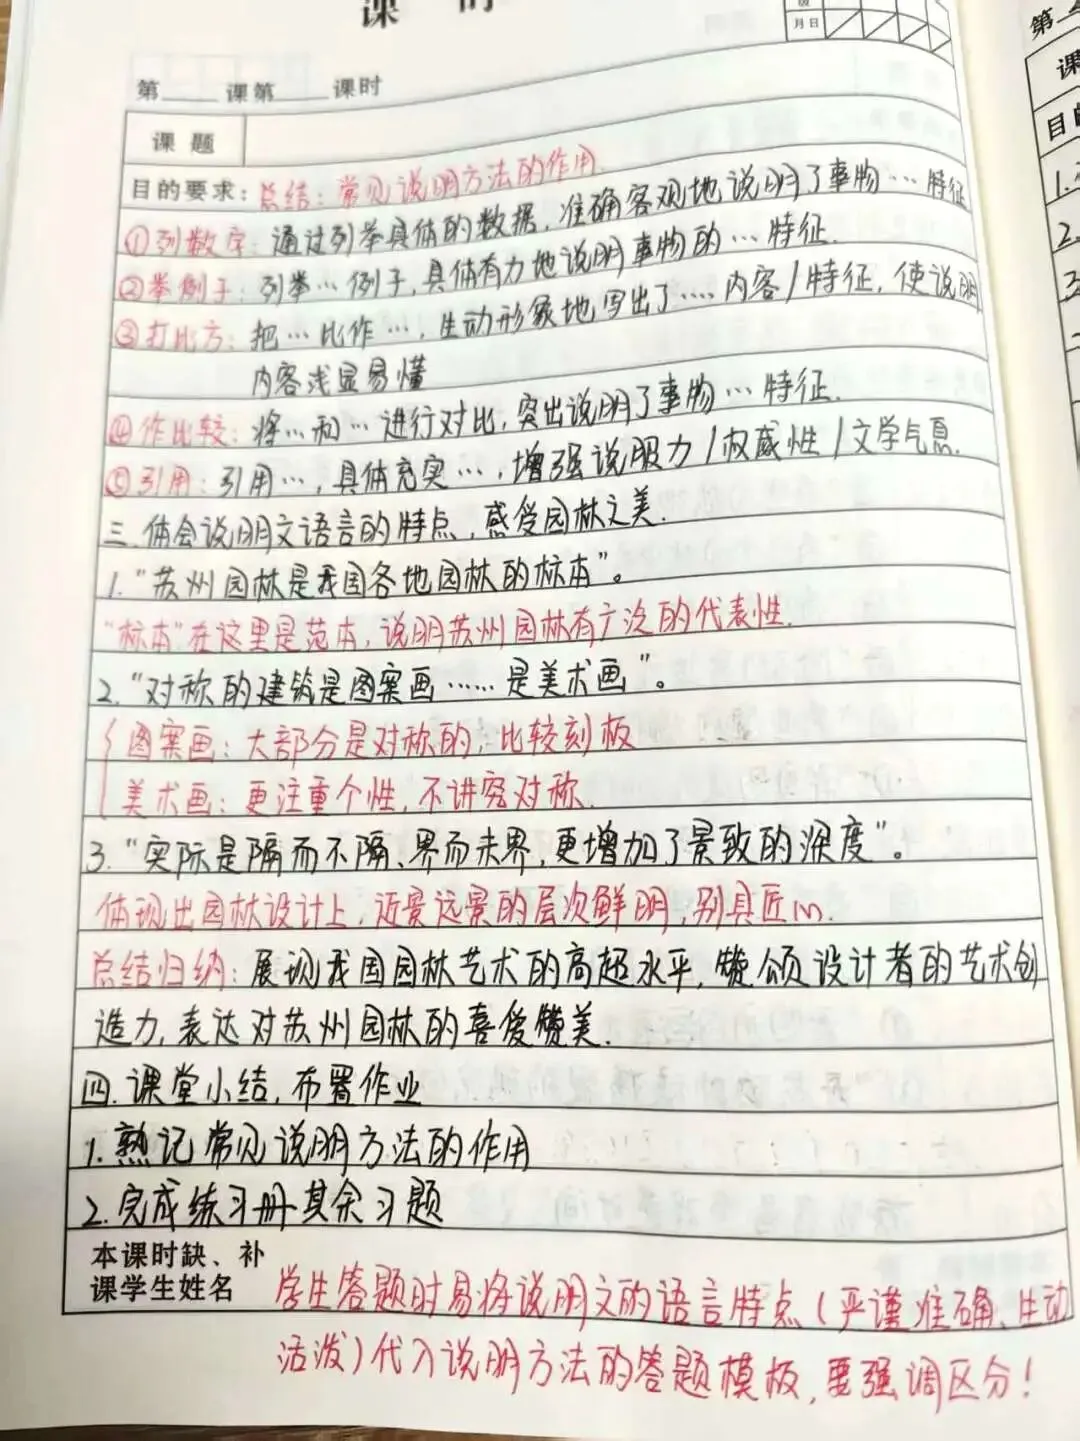 课 时
月日
第____课第____课时
课 题
目的要求：总结：常见说明方法的作用.
①列数字：通过列举具体的数据，准确客观地说明了事物…特征
②举例子：列举…例子，具体有力地说明事物的…特征.
③打比方：把…比作…，生动形象地写出了….内容/特征，使说明
内容浅显易懂
④作比较：将…和…进行对比，突出说明了事物…特征.
⑤引用：引用…，具体充实…，增强说服力/权威性/文学气息.
三.体会说明文语言的特点，感受园林之美.
1."苏州园林是我国各地园林的标本"。
"标本"在这里是范本，说明苏州园林有广泛的代表性.
2."对称的建筑是图案画……是美术画"。
图案画：大部分是对称的，比较刻板
美术画：更注重个性，不讲究对称.
3."实际是隔而不隔、界而未界，更增加了景致的深度"。
体现出园林设计上，近景远景的层次鲜明，别具匠心.
总结归纳：展现我国园林艺术的高超水平，赞颂设计者的艺术创
造力，表达对苏州园林的喜爱赞美.
四.课堂小结，布置作业
1.熟记常见说明方法的作用
2.完成练习册其余习题
本课时缺、补
课学生姓名
学生答题时易将说明文的语言特点（严谨准确、生动
活泼）代入说明方法的答题模板，要强调区分！
第
课
目的
1.
2.